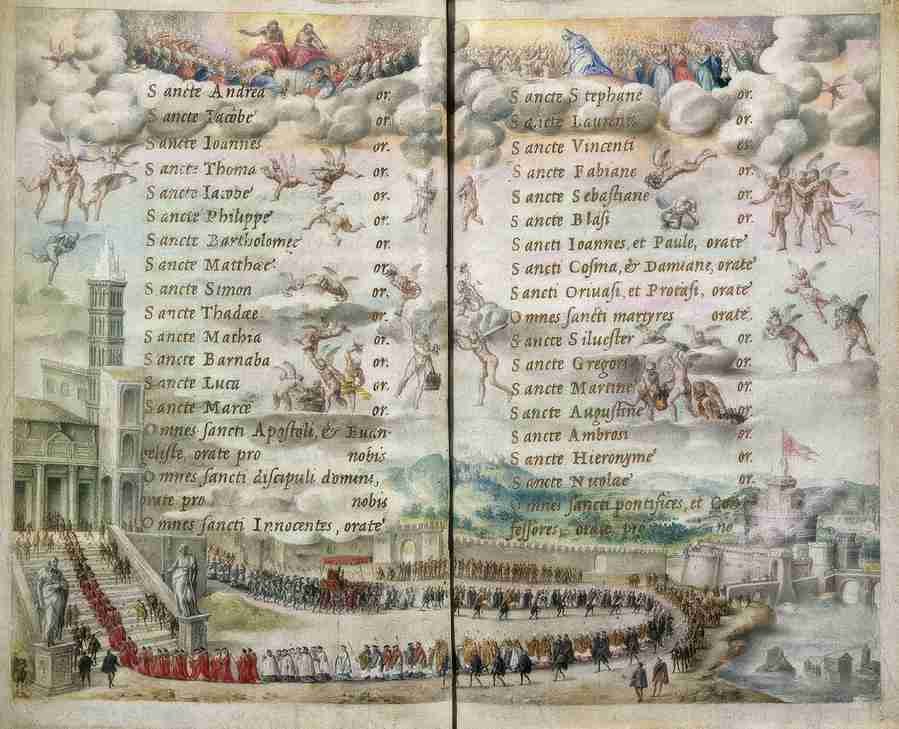 Sancte Andrea or.
Sancte Iacobe or.
Sancte Ioannes or.
Sancte Thoma or.
Sancte Iacobe or.
Sancte Philippe or.
Sancte Bartholomee or.
Sancte Matthæe or.
Sancte Simon or.
Sancte Thadæe or.
Sancte Mathia or.
Sancte Barnaba or.
Sancte Luca or.
Sancte Marce or.
Omnes sancti Apostoli, & Euan-
gelistę, orate pro nobis
Omnes sancti discipuli domini,
orate pro nobis
Omnes sancti Innocentes, orate
Sancte Stephane or.
Sancte Laurenti or.
Sancte Vincenti or.
Sancte Fabiane or.
Sancte Sebastiane or.
Sancte Blasi or.
Sancti Ioannes, et Paule, orate
Sancti Cosma, & Damiane, orate
Sancti Geruasi, et Protasi, orate
Omnes sancti martyres orate.
Sancte Siluester or.
Sancte Gregori or.
Sancte Martine or.
Sancte Augustine or.
Sancte Ambrosi or.
Sancte Hieronyme or.
Sancte Nicolae or.
Omnes sancti pontifices, et Con-
fessores, orate pro no